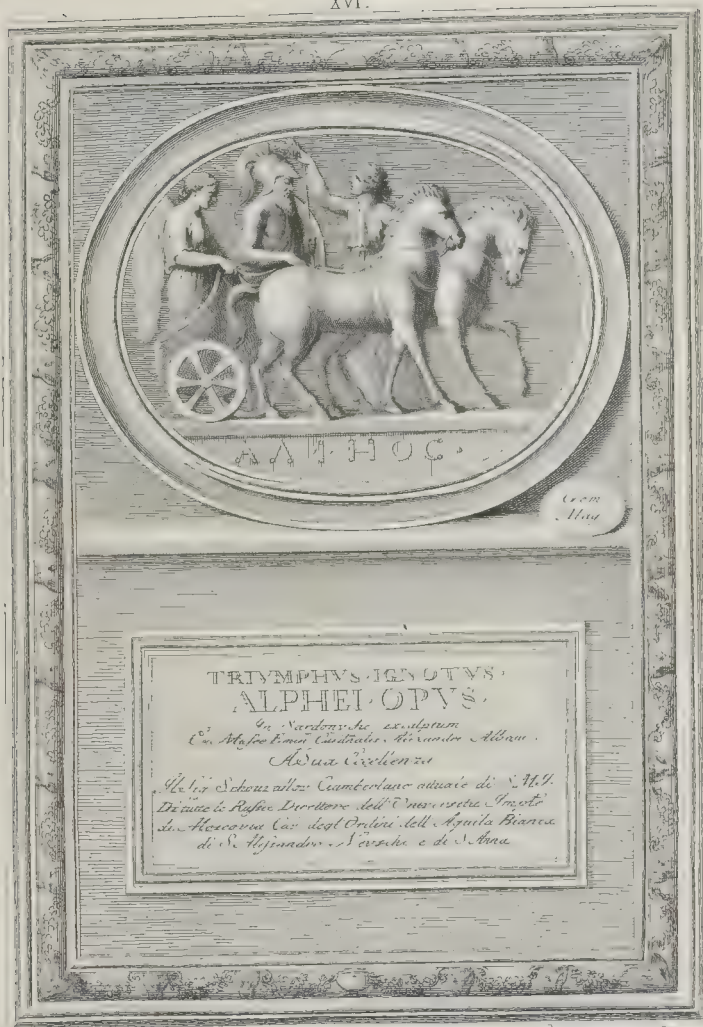 XVI.
ΑΛΦΗΟC
Gem
Mag
TRIVMPHVS · IGNOTVS ·
ALPHEI · OPVS ·
In Sardonyche exculptum
Alexandri Albani.
A Sua Eccelenza
Ciamberlano attuale di S.M.I.
Di tutte le Russie Direttore dell'Università
di Moscovia Cav. degl'Ordini dell'Aquila Bianca
di S. Alessandro Newschi e di S. Anna